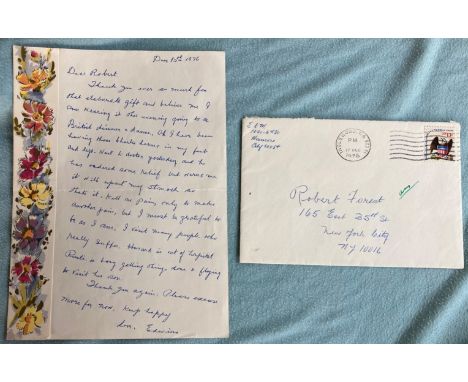 Dec 15th 1976
Dear Robert
Thank you ever so much for
that elaborate gift and believe me I
am wearing it this evening going to a
British dinner & dance. Oh I have been
having those blasted in my foot
and legs. Went to doctor yesterday and he
has ordered some relief, but warns me
it will upset my stomach so
thats it. Kill a pain only to make
another pain, but I must be grateful to
be as I am. I count many people who
really suffer. Howard is out of hospital
Ruth is busy getting things done & flying
to visit his son.
Thank you again. Please excuse
more for now. Keep happy
Love, Edwina
PM
17 DEC
1976
Robert Forest
165 East 35th St
New York City
NY 10016